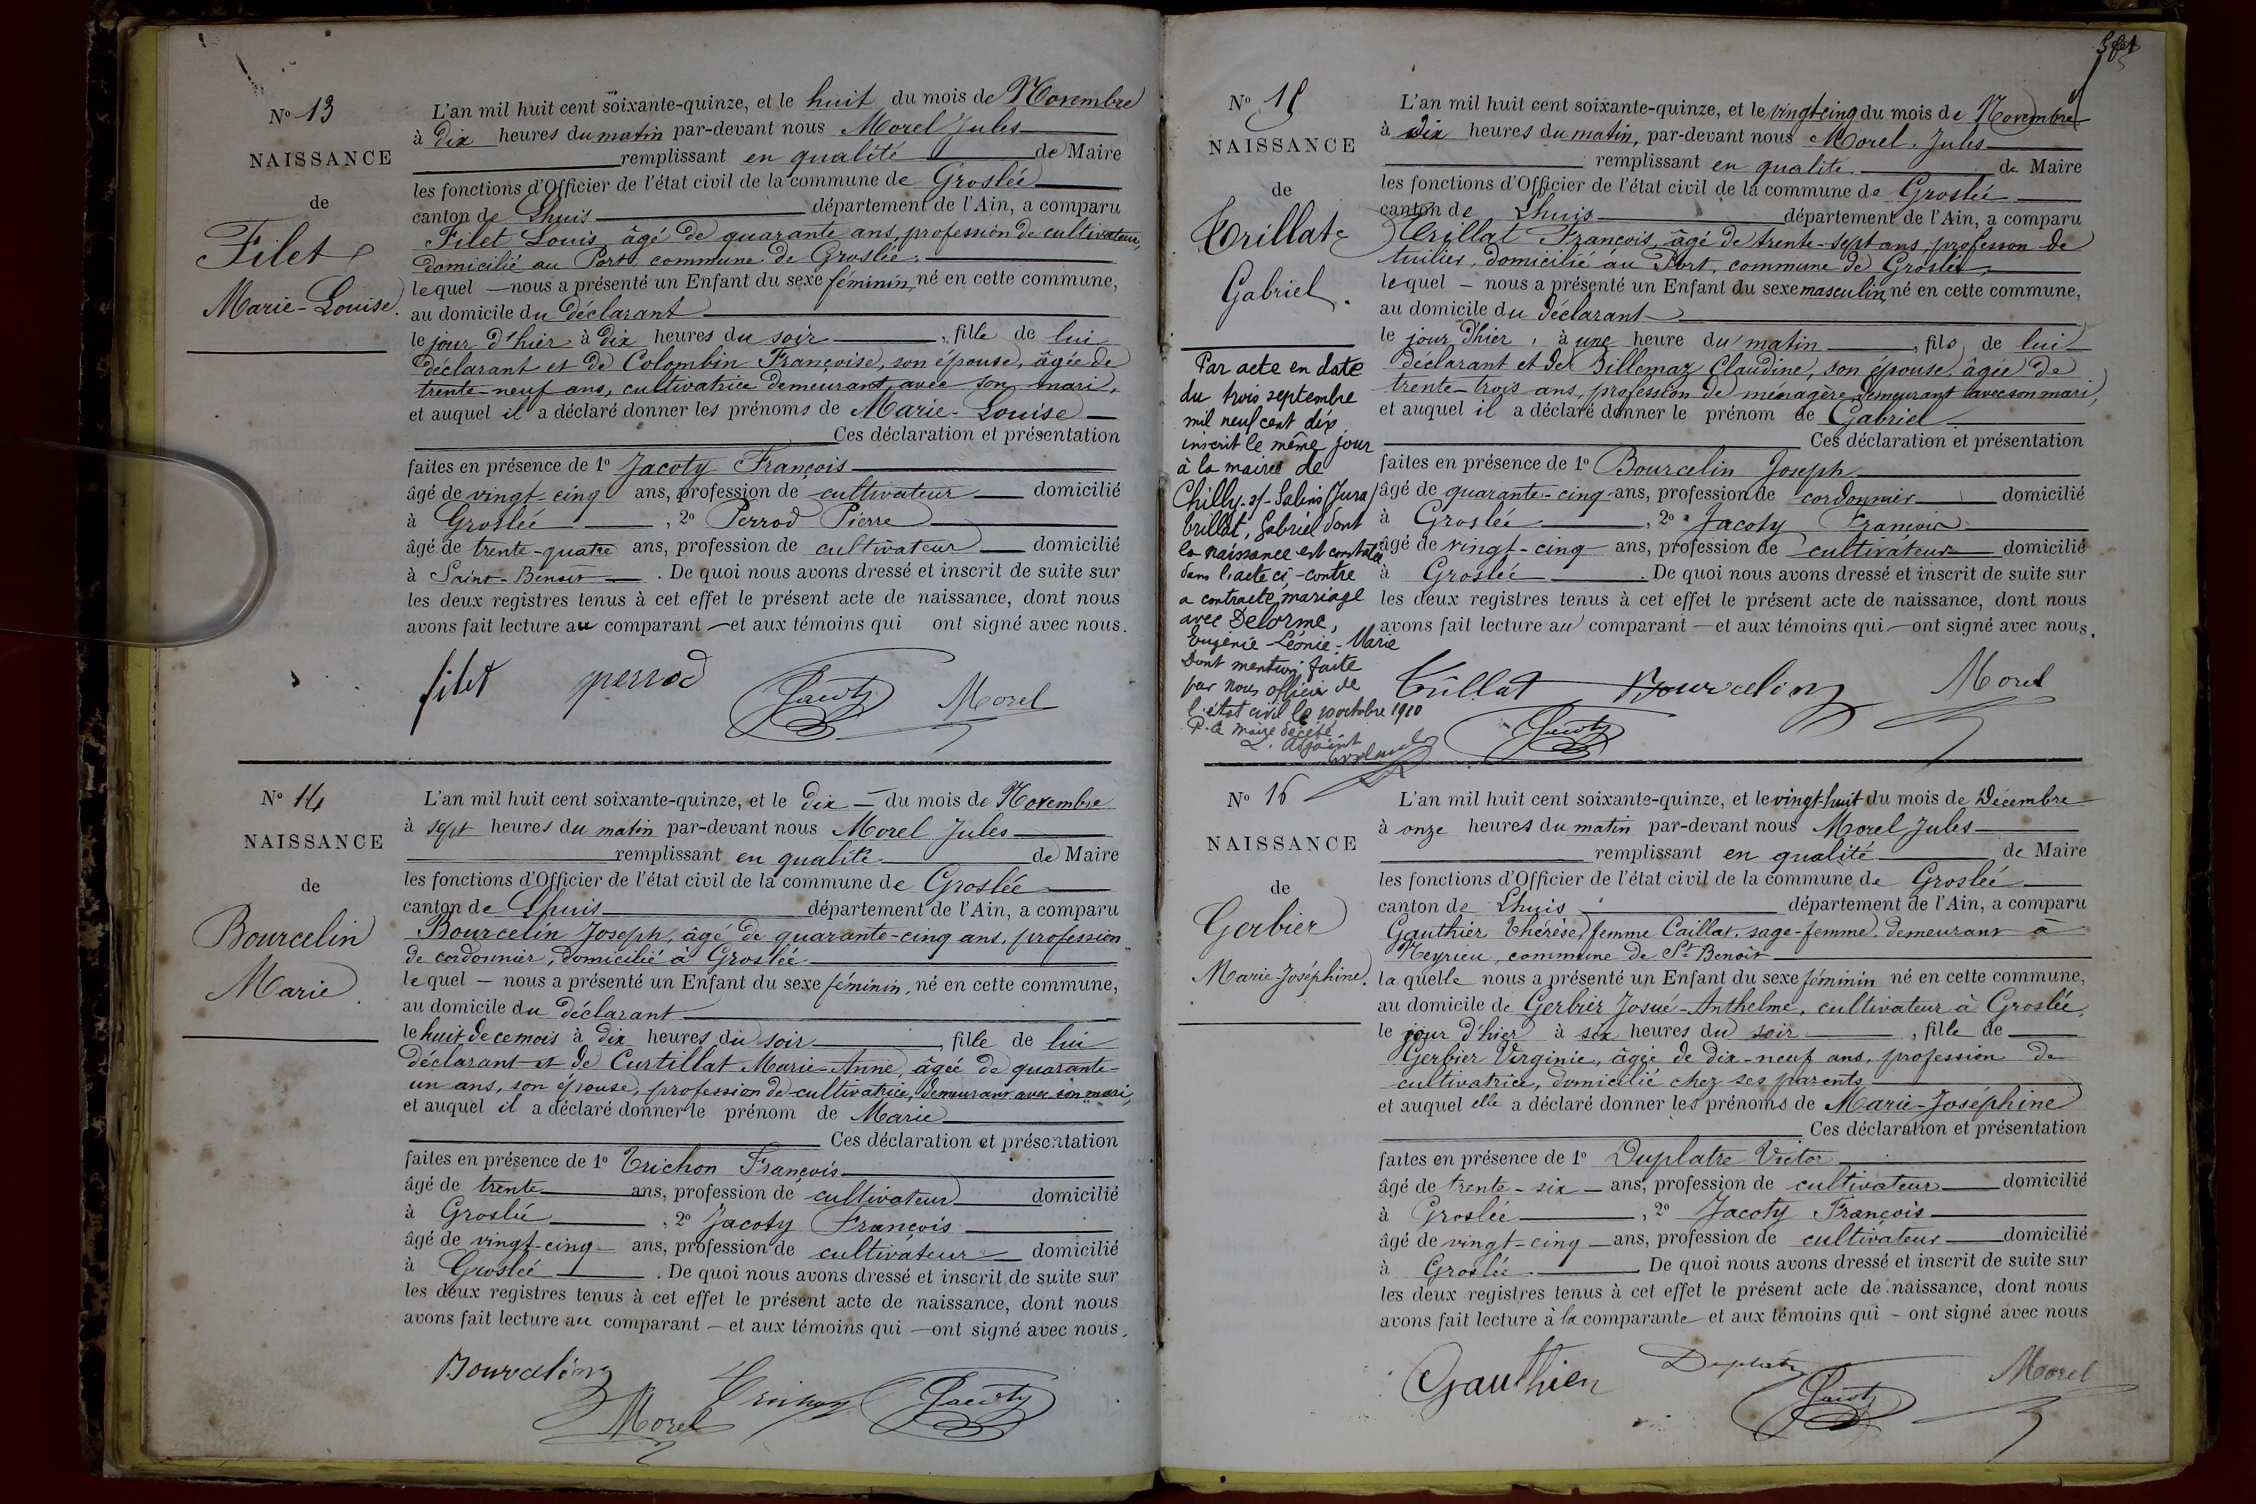 No 13
NAISSANCE
de
Filet
Marie-Louise.
L'an mil huit cent soixante-quinze, et le huit du mois de Novembre
à dix heures du matin par-devant nous Morel Jules
remplissant en qualité de Maire
les fonctions d'Officier de l'état civil de la commune de Groslée
canton de Lhuis département de l'Ain, a comparu
Filet Louis âgé de quarante ans, profession de cultivateur,
domicilié au Port commune de Groslée.
lequel — nous a présenté un Enfant du sexe féminin, né en cette commune,
au domicile du déclarant
le jour d'hier à dix heures du soir, fille de lui
déclarant et de Colombin Françoise, son épouse, âgée de
trente-neuf ans, cultivatrice demeurant avec son mari,
et auquel il a déclaré donner les prénoms de Marie-Louise
Ces déclaration et présentation
faites en présence de 1o Jacoty François
âgé de vingt-cinq ans, profession de cultivateur domicilié
à Groslée, 2o Perrod Pierre
âgé de trente-quatre ans, profession de cultivateur domicilié
à Saint-Benoît. De quoi nous avons dressé et inscrit de suite sur
les deux registres tenus à cet effet le présent acte de naissance, dont nous
avons fait lecture au comparant — et aux témoins qui ont signé avec nous.
filet perrod Jacoty Morel
No 14
NAISSANCE
de
Bourcelin
Marie.
L'an mil huit cent soixante-quinze, et le dix — du mois de Novembre
à sept heures du matin par-devant nous Morel Jules
remplissant en qualité de Maire
les fonctions d'Officier de l'état civil de la commune de Groslée
canton de Lhuis département de l'Ain, a comparu
Bourcelin Joseph, âgé de quarante-cinq ans, profession
de cordonnier, domicilié à Groslée
lequel — nous a présenté un Enfant du sexe féminin, né en cette commune,
au domicile du déclarant
le huit de ce mois à dix heures du soir, fille de lui
déclarant et de Curtillat Marie-Anne, âgée de quarante-
un ans, son épouse, profession de cultivatrice, demeurant avec son mari,
et auquel il a déclaré donner le prénom de Marie
Ces déclaration et présentation
faites en présence de 1o Trichon François
âgé de trente ans, profession de cultivateur domicilié
à Groslée, 2o Jacoty François
âgé de vingt-cinq ans, profession de cultivateur domicilié
à Groslée. De quoi nous avons dressé et inscrit de suite sur
les deux registres tenus à cet effet le présent acte de naissance, dont nous
avons fait lecture au comparant — et aux témoins qui — ont signé avec nous.
Bourcelin Trichon Jacoty
Morel
No 15
NAISSANCE
de
Trillat
Gabriel.
Par acte en date
du trois septembre
mil neuf cent dix
inscrit le même jour
à la mairie de
Chilly-s/-Salins (Jura)
Trillat, Gabriel dont
la naissance est constatée
dans l'acte ci-contre
a contracté mariage
avec Delorme,
Eugénie-Léonie-Marie
Dont mention faite
par nous officier de
l'état civil le 10 octobre 1910
P. le maire décédé
L'adjoint
L'an mil huit cent soixante-quinze, et le vingt-cinq du mois de Novembre
à dix heures du matin, par-devant nous Morel Jules
remplissant en qualité de Maire
les fonctions d'Officier de l'état civil de la commune de Groslée
canton de Lhuis département de l'Ain, a comparu
Trillat François, âgé de trente-sept ans profession de
tuilier, domicilié au Port, commune de Groslée,
lequel — nous a présenté un Enfant du sexe masculin, né en cette commune,
au domicile du déclarant
le jour d'hier, à une heure du matin, fils de lui
déclarant et de Billemaz Claudine, son épouse, âgée de
trente-trois ans, profession de ménagère demeurant avec son mari,
et auquel il a déclaré donner le prénom de Gabriel
Ces déclaration et présentation
faites en présence de 1o Bourcelin Joseph
âgé de quarante-cinq ans, profession de cordonnier domicilié
à Groslée, 2o Jacoty François
âgé de vingt-cinq ans, profession de cultivateur domicilié
à Groslée. De quoi nous avons dressé et inscrit de suite sur
les deux registres tenus à cet effet le présent acte de naissance, dont nous
avons fait lecture au comparant — et aux témoins qui — ont signé avec nous.
Trillat Bourcelin Morel
Jacoty
No 16
NAISSANCE
de
Gerbier
Marie Joséphine.
L'an mil huit cent soixante-quinze, et le vingt-huit du mois de Décembre
à onze heures du matin par-devant nous Morel Jules
remplissant en qualité de Maire
les fonctions d'Officier de l'état civil de la commune de Groslée
canton de Lhuis département de l'Ain, a comparu
Gauthier Thérèse, femme Caillat, sage-femme, demeurant à
Meyrieu, commune de St Benoît
laquelle nous a présenté un Enfant du sexe féminin né en cette commune,
au domicile de Gerbier Josué-Anthelme, cultivateur à Groslée,
le jour d'hier à six heures du soir, fille de
Gerbier Virginie, âgée de dix-neuf ans, profession de
cultivatrice, domicilié chez ses parents
et auquel elle a déclaré donner les prénoms de Marie-Joséphine
Ces déclaration et présentation
faites en présence de 1o Duplatre Victor
âgé de trente-six — ans, profession de cultivateur domicilié
à Groslée, 2o Jacoty François
âgé de vingt-cinq — ans, profession de cultivateur domicilié
à Groslée. De quoi nous avons dressé et inscrit de suite sur
les deux registres tenus à cet effet le présent acte de naissance, dont nous
avons fait lecture à la comparante et aux témoins qui – ont signé avec nous
Gauthier Duplatre Jacoty Morel